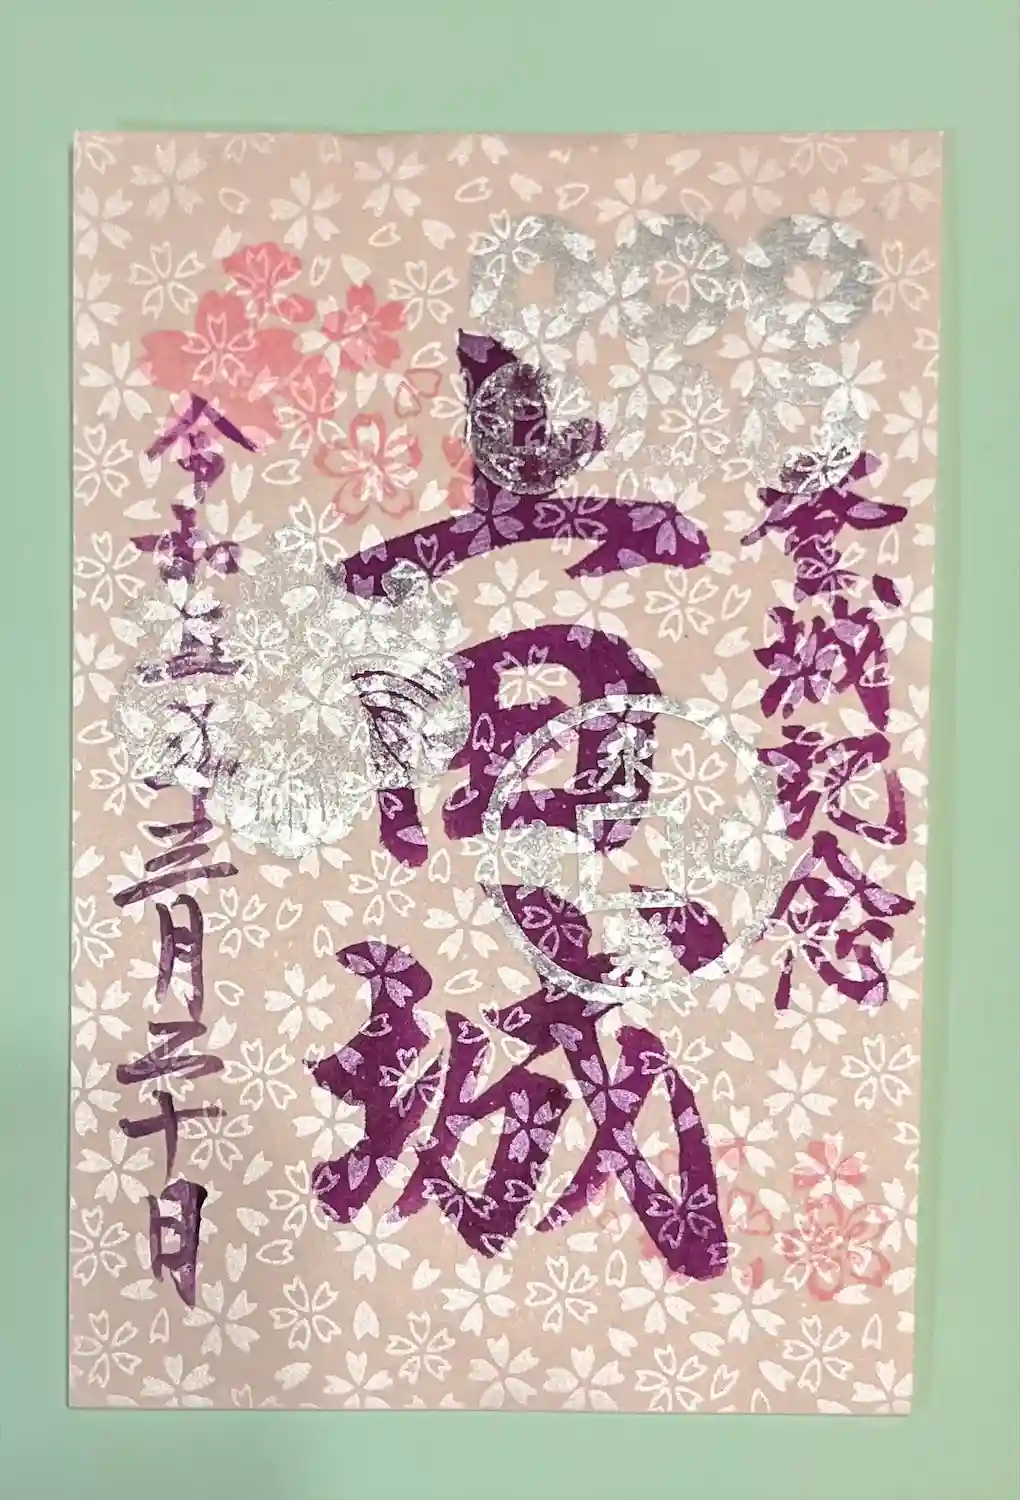 登城記念
上田城
令和五年三月二十日
永